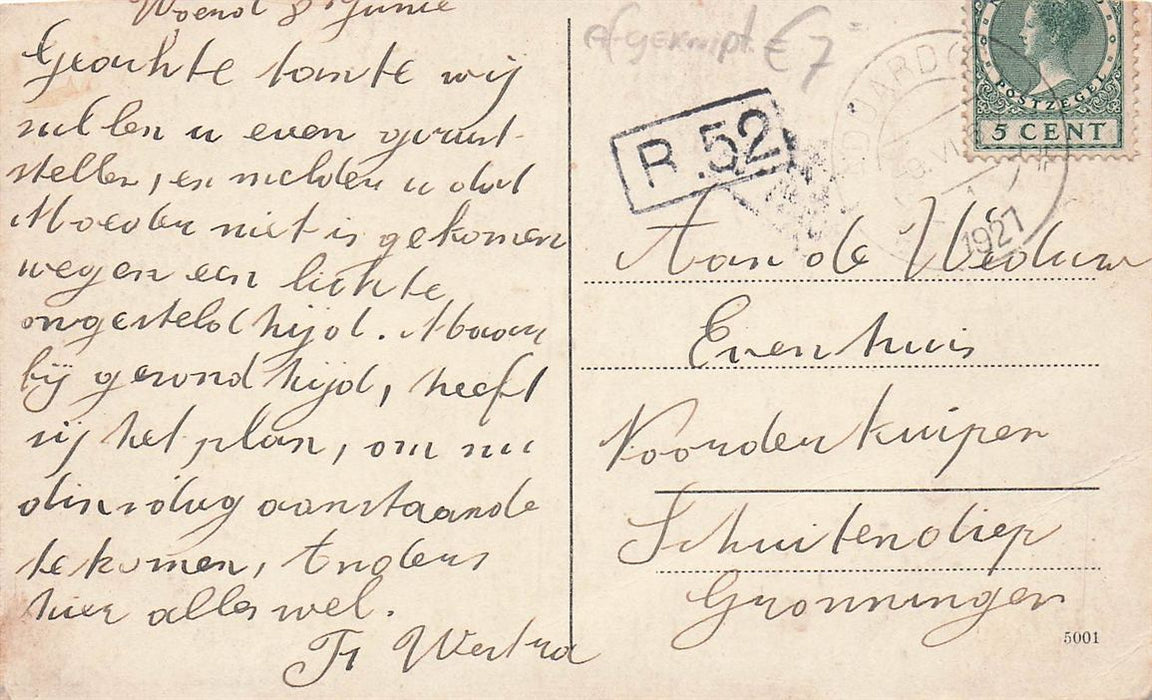 Woensd 8 Junie
Geachte tante wij
zullen u even gerust-
stellen, en melden u dat
Moeder niet is gekomen
wegen een lichte
ongesteldhijd. Maar
bij gezondhijd, heeft
zij het plan, om nu
dinsdag aanstaande
te komen, Anders
hier alles wel.
Fr Westra
Afgeknipt € 7
R.52
POSTZEGEL
5 CENT
1927
Aan de Weduw
Evenhuis
Noorderkuipen
Schuitendiep
Gronningen
5001